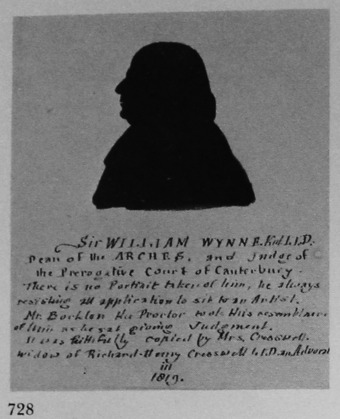 Sir WILLIAM WYNNE. Knt. LL.D.
Dean of the ARCHES, and Judge of
the Prerogative Court of Canterbury.
There is no Portrait taken of him, he always
resisting all application to sit to an Artist.
Mr. Bocklon his Proctor took this resemblance
of him as he sat giving Judgment.
It was faithfully copied by Mrs. Cresswell
widow of Richard-Henry Cresswell LL.D. an Advocat
in
1819.
728